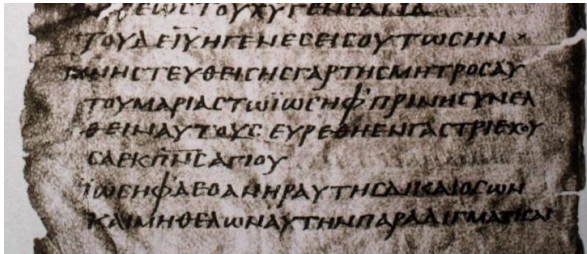 ΕΩϹΤΟΥΧΥΓΕΝΕΑΙΙΔ
ΤΟΥΔΕΙΥΗΓΕΝΕϹΕΙϹΟΥΤΩϹΗΝ
ΜΝΗϹΤΕΥΘΕΙϹΗϹΓΑΡΤΗϹΜΗΤΡΟϹΑΥ
ΤΟΥΜΑΡΙΑϹΤΩΪΩϹΗΦ'ΠΡΙΝΗϹΥΝΕΛ
ΘΕΙΝΑΥΤΟΥϹΕΥΡΕΘΗΕΝΓΑϹΤΡΙΕΧΟΥ
ϹΑΕΚΠΝϹΑΓΙΟΥ
ΪΩϹΗΦΔΕΟΑΝΗΡΑΥΤΗϹΔΙΚΑΙΟϹΩΝ
ΚΑΙΜΗΘΕΛΩΝΑΥΤΗΝΠΑΡΑΔΙΓΜΑΤΙϹΑΙ